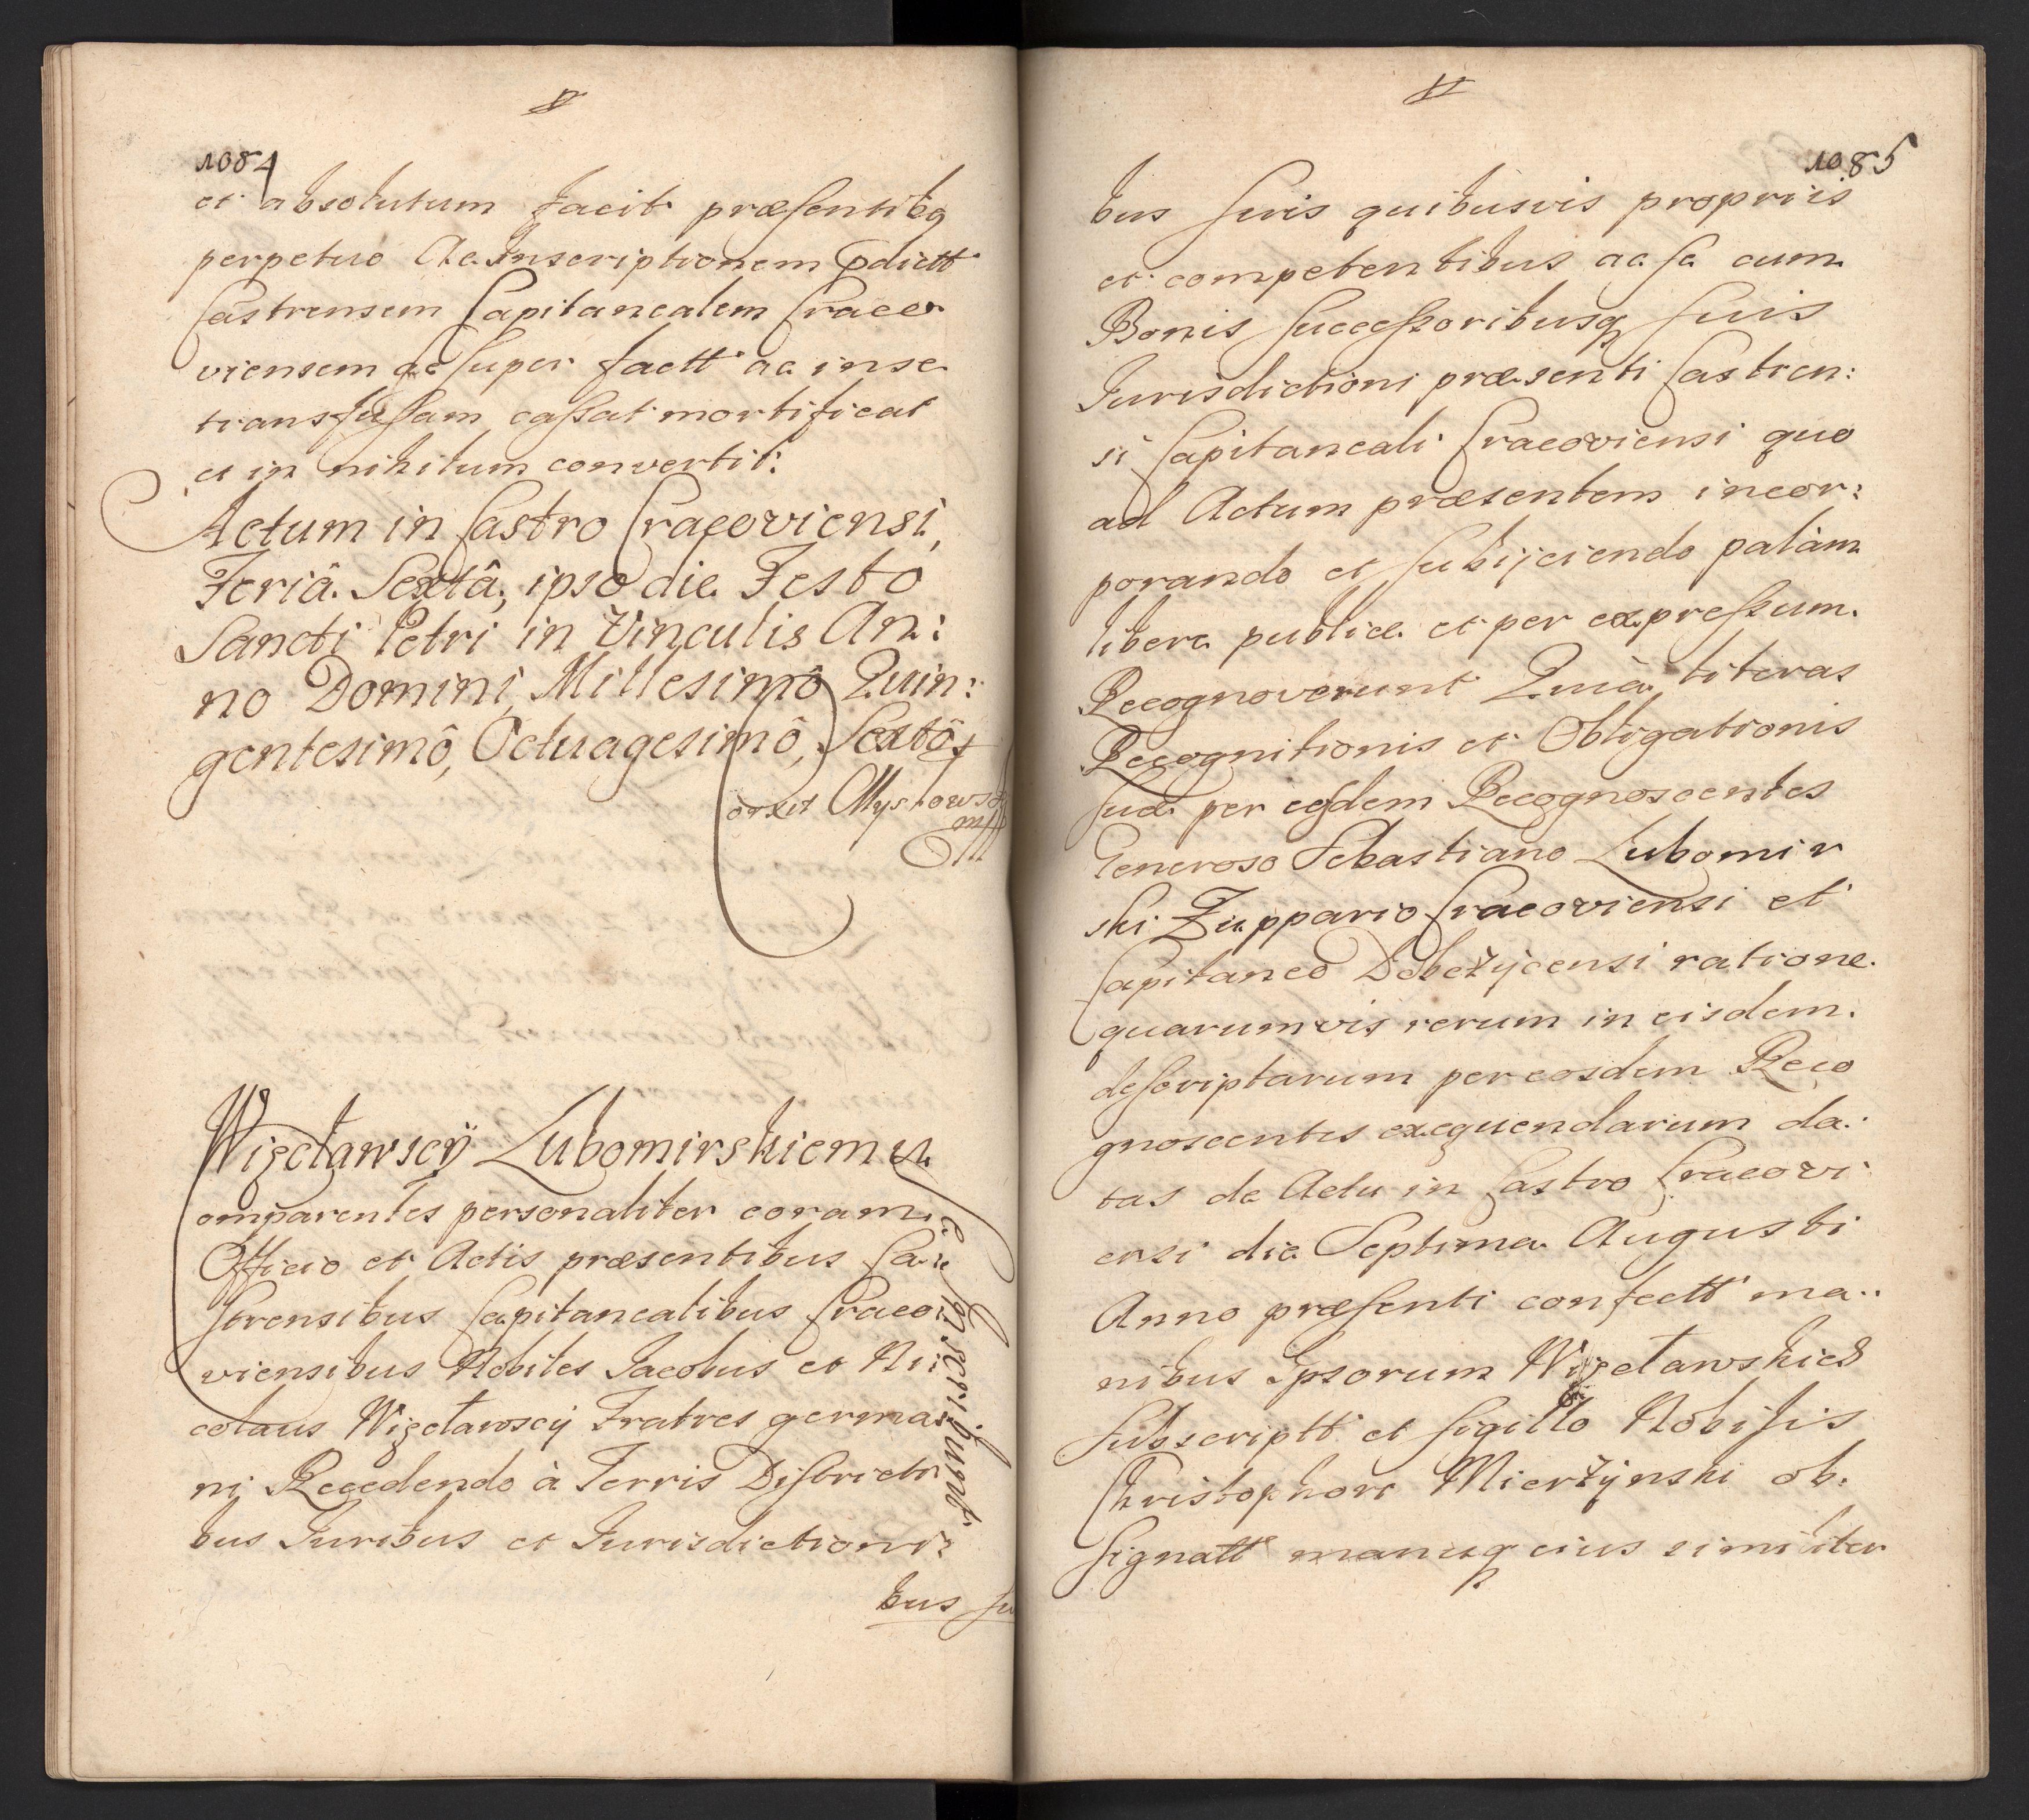 1084
et absolutum facit præsentibq
perpetuo Ac Inscriptionem pdictt
Castrensem Capitanealem Craco
viensem de super factt ac in se
transfusam cassat mortificat
et in nihilum convertit.
Actum in Castro Cracoviensi,
Feriâ Sextâ, ipso die Festo
Sancti Petri in Vinculis An:
no Domini Millesimô Quin:
gentesimô, Octuagesimô, Sextô
Wizeławscÿ Lubomirskiemu
inscribunt
Comparentes personaliter coram
Officio et Actis præsentibus Ca:
strensibus Capitanealibus Craco:
viensibus Nobiles Jacobus et Ni:
colaus Wizeławscij Fratres germa:
ni Recedendo à Terris Districti
bus Juribus et Jurisdictioni:
bus su
1085
bus suis quibusvis propriis
et competentibus ac se cum
Bonis successoribusq suis
Jurisdictioni præsenti Castren:
si Capitaneali Cracoviensi quo
ad Actum præsentem incor:
porando et subijciendo palàm
libere publice et per expressum
Recognoverunt Quià literas
Recognitionis et Obligationis
suæ per eosdem Recognoscentes
Generoso Sebastiano Lubomir
ski Zuppario Cracoviensi et
Capitaneo Dobczÿcensi ratione
quarumvis rerum in eisdem
descriptarum per eosdem Reco
gnoscentes exequendarum da:
tas de Actu in Castro Cracovi
ensi die Septima Augusti
Anno præsenti confectt ma:
nibus Ipsorum Wizeławskich
Subscriptt et sigillo Nobilis
Christophori Mierzÿnski ob:
signatt manuq eius similiter